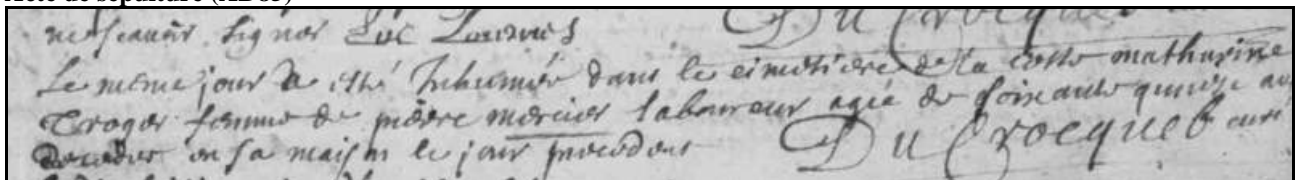 Acte de sépulture (AD85)
ne scavoir signer Luc
Du Crocquet
Le meme jour a esté Inhumée dans le cimetiere de la coste mathurine
Troger femme de pierre mercier laboureur agée de soixante quinze
decedee en sa maison le jour precedent Du Crocquet curé